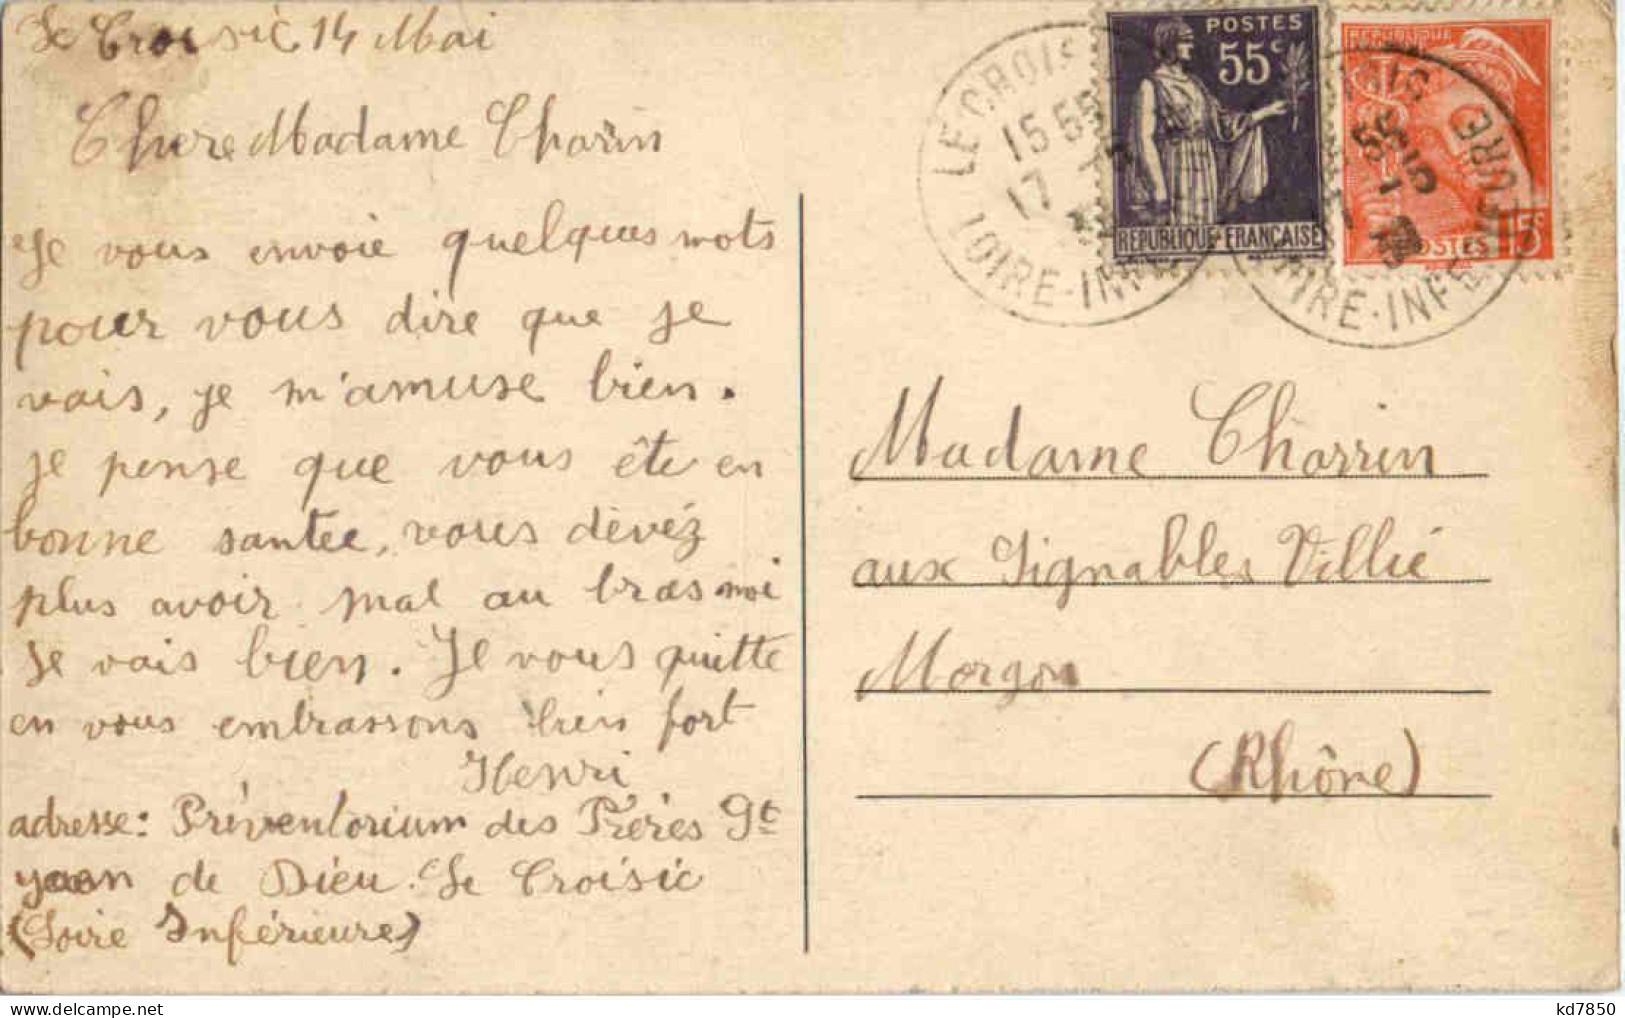 Le Croisic 14 Mai
Chere Madame Charin
Je vous envoie quelques mots
pour vous dire que je
vais, je m'amuse bien.
je pense que vous ête en
bonne santee, vous dèvéz
plus avoir mal au bras moi
je vais bien. Je vous quitte
en vous embrassons bien fort
Henri
adresse: Préventorium des Frères St
jean de Dieu. Le Croisic
(Loire Inférieure)
POSTES
55c
REPUBLIQUE FRANÇAISE
REPUBLIQUE
POSTES 15c
LE CROISIC
15 55
17
LOIRE-INF
URE
LOIRE-INF
Madame Charrin
aux Vignables Villié
Morgon
(Rhône)
kd7850